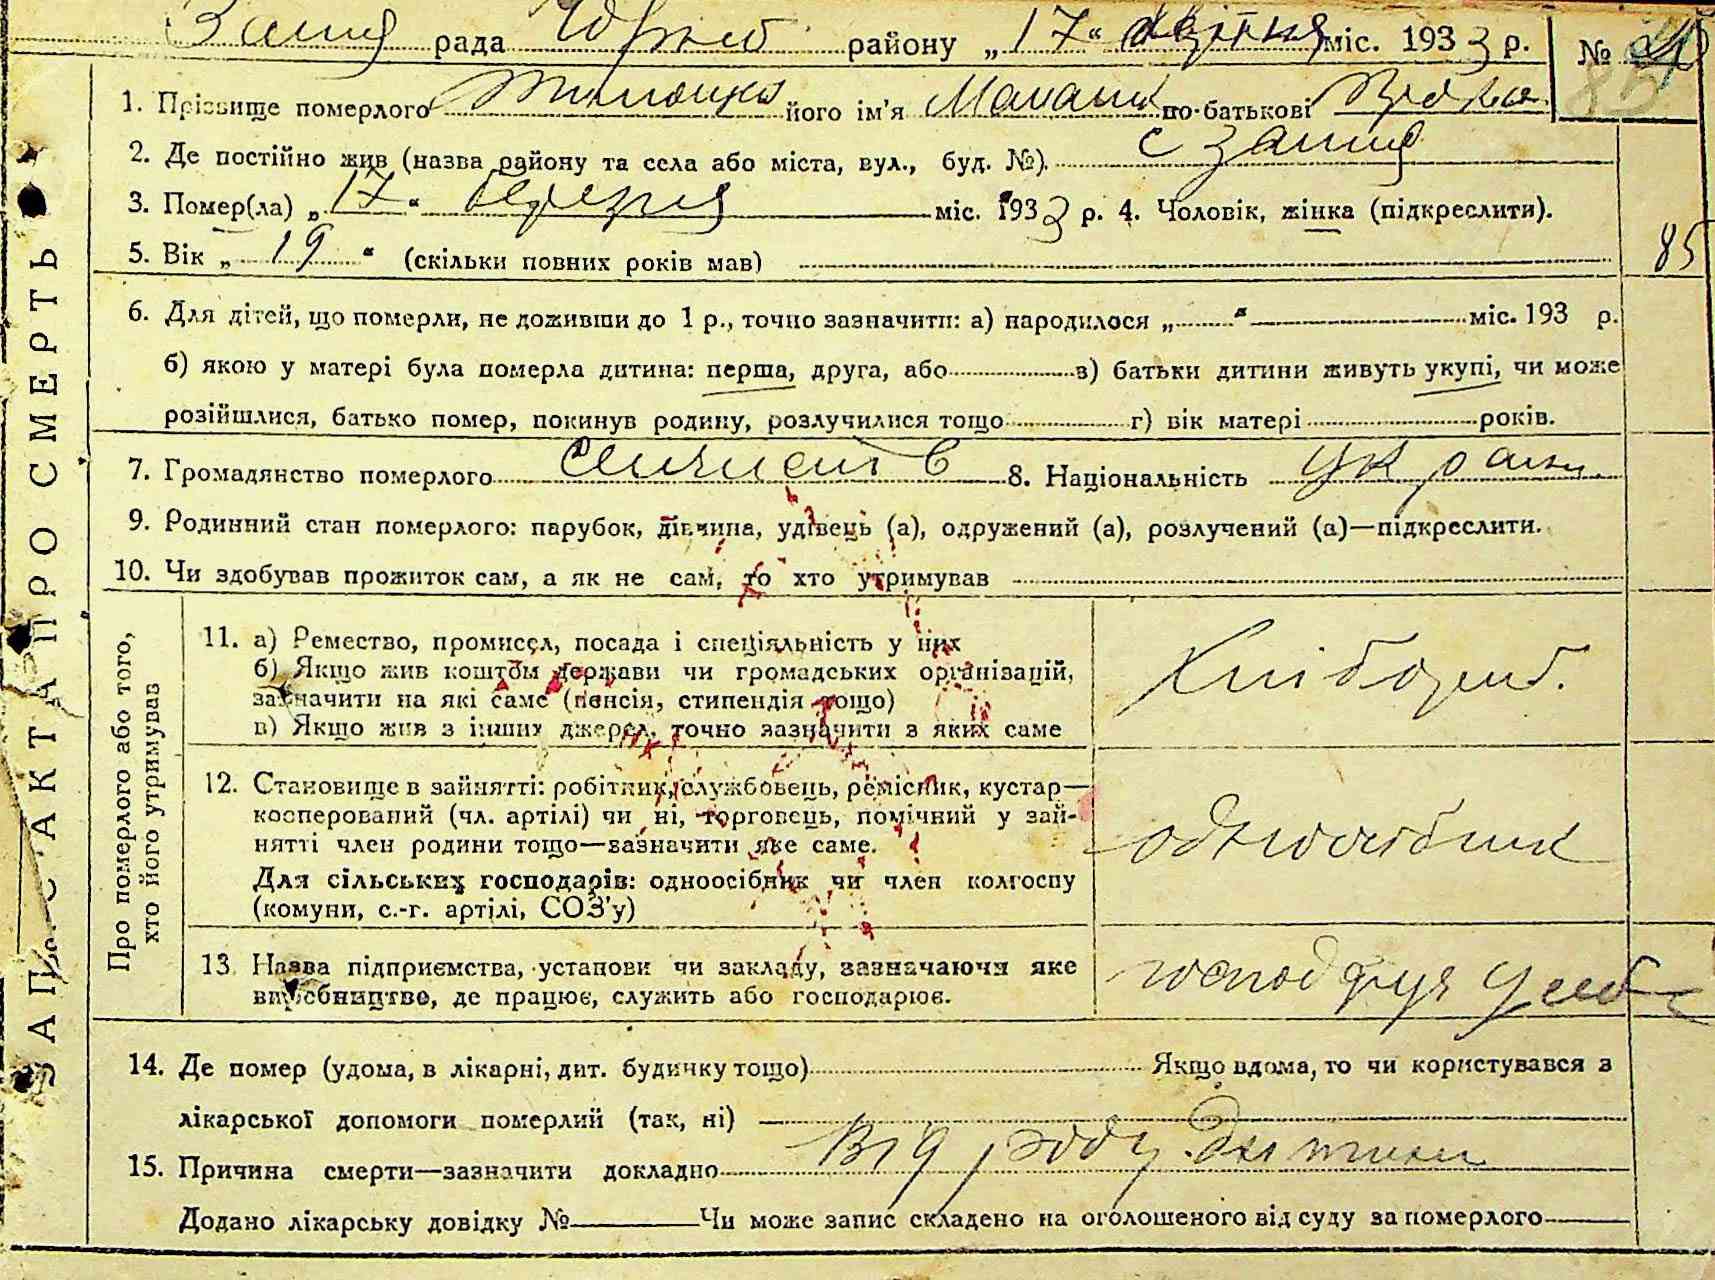 рада району „17“ квітня міс. 1933 р. №
1. Прізвище померлого його ім'я Маланка по-батькові
2. Де постійно жив (назва району та села або міста, вул., буд. №). с
3. Помер(ла) „17“ березня міс. 1933 р. 4. Чоловік, жінка (підкреслити).
5. Вік „19“ (скільки повних років мав)
85
6. Для дітей, що померли, не доживши до 1 р., точно зазначити: а) народилося „ “ міс. 193 р.
б) якою у матері була померла дитина: перша, друга, або в) батьки дитини живуть укупі, чи може
розійшлися, батько помер, покинув родину, розлучилися тощо г) вік матері років.
7. Громадянство померлого 8. Національність
9. Родинний стан померлого: парубок, дівчина, удівець (а), одружений (а), розлучений (а)—підкреслити.
10. Чи здобував прожиток сам, а як не сам, то хто утримував
ЗАПИС АКТА ПРО СМЕРТЬ
Про померлого або того,
хто його утримував
11. а) Ремество, промисел, посада і спеціяльність у них
б) Якщо жив коштом держави чи громадських організацій,
зазначити на які саме (пенсія, стипендія тощо)
в) Якщо жив з інших джерел, точно зазначити з яких саме
Хлібороб.
12. Становище в зайнятті: робітник, службовець, ремісник, кустар—
косперований (чл. артілі) чи ні, торговець, помічний у зай-
нятті член родини тощо—зазначити яке саме.
Для сільських господарів: одноосібник чи член колгоспу
(комуни, с.-г. артілі, СОЗ'у)
одноосібник
13. Назва підприємства, установи чи закладу, зазначаючи яке
виробництво, де працює, служить або господарює.
господарує у себе
14. Де помер (удома, в лікарні, дит. будинку тощо) Якщо вдома, то чи користувався з
лікарської допомоги померлий (так, ні)
15. Причина смерти—зазначити докладно від роду дитини
Додано лікарську довідку № Чи може запис складено на оголошеного від суду за померлого